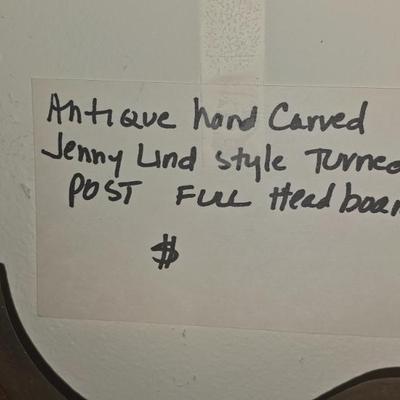 Antique hand Carved
Jenny Lind style Turned
POST FULL Headboar
$